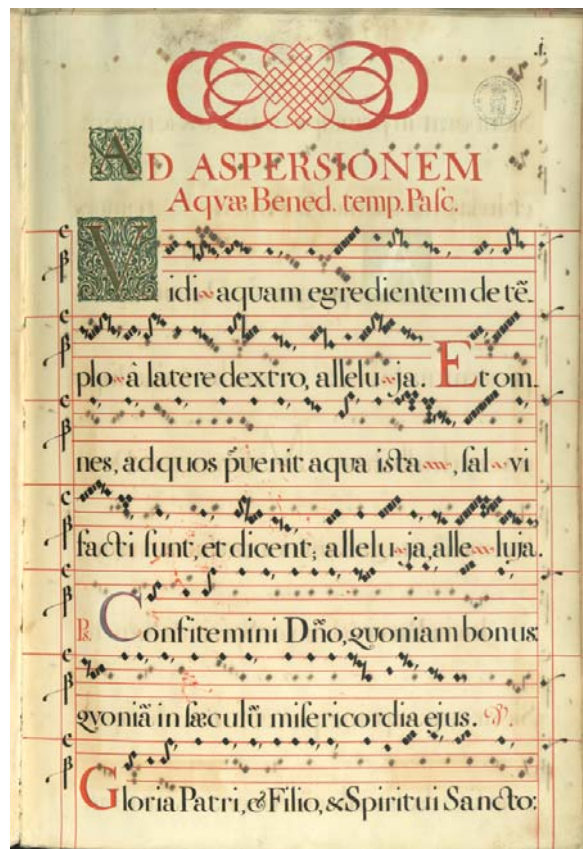 .i.
AD ASPERSIONEM
Aqvæ Bened. temp. Paſc.
Vidi aquam egredientem de tē-
plo à latere dextro, allelu ja. Et om-
nes, ad quos p̄uenit aqua iſta, ſal vi
facti ſunt, et dicent; allelu ja, alle luja.
Ps. Confitemini Dn̄o, quoniam bonus:
qvoniā in ſæculū miſericordia ejus. V.
Gloria Patri, & Filio, & Spiritui Sancto: